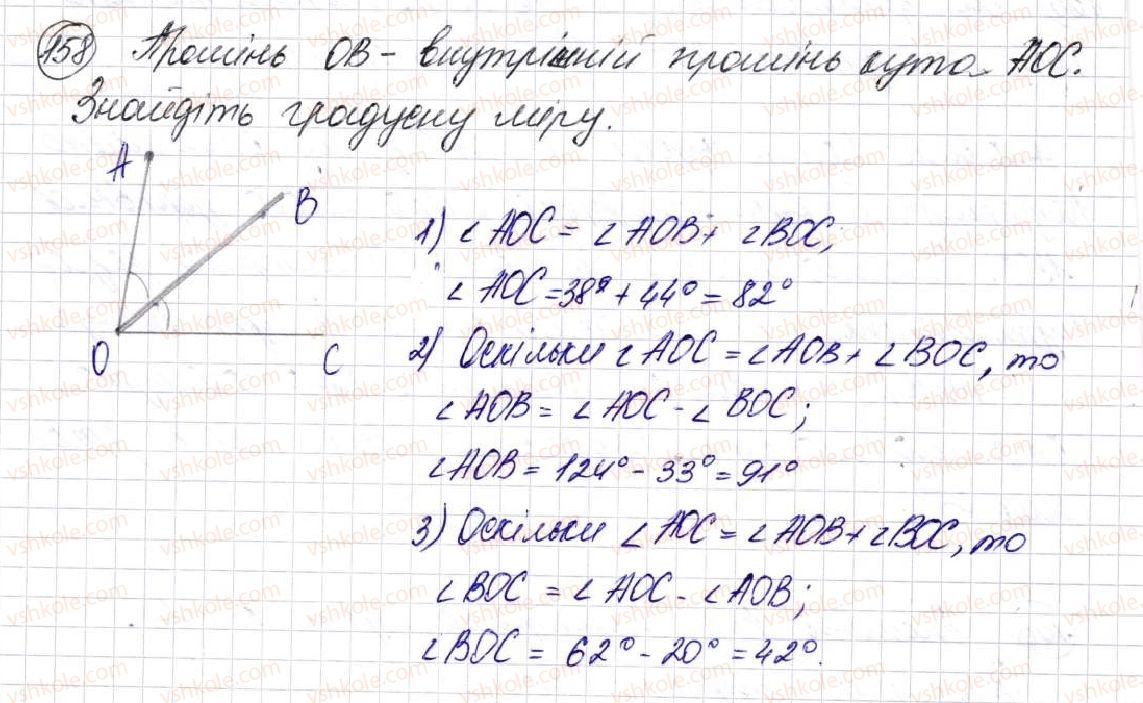 158 Промінь OB - внутрішній промінь кута AOC.
Знайдіть градусну міру.
A
B
O
C
1) ∠AOC = ∠AOB + ∠BOC;
∠AOC = 38° + 44° = 82°
2) Оскільки ∠AOC = ∠AOB + ∠BOC, то
∠AOB = ∠AOC - ∠BOC;
∠AOB = 124° - 33° = 91°
3) Оскільки ∠AOC = ∠AOB + ∠BOC, то
∠BOC = ∠AOC - ∠AOB;
∠BOC = 62° - 20° = 42°.
vshkole.com